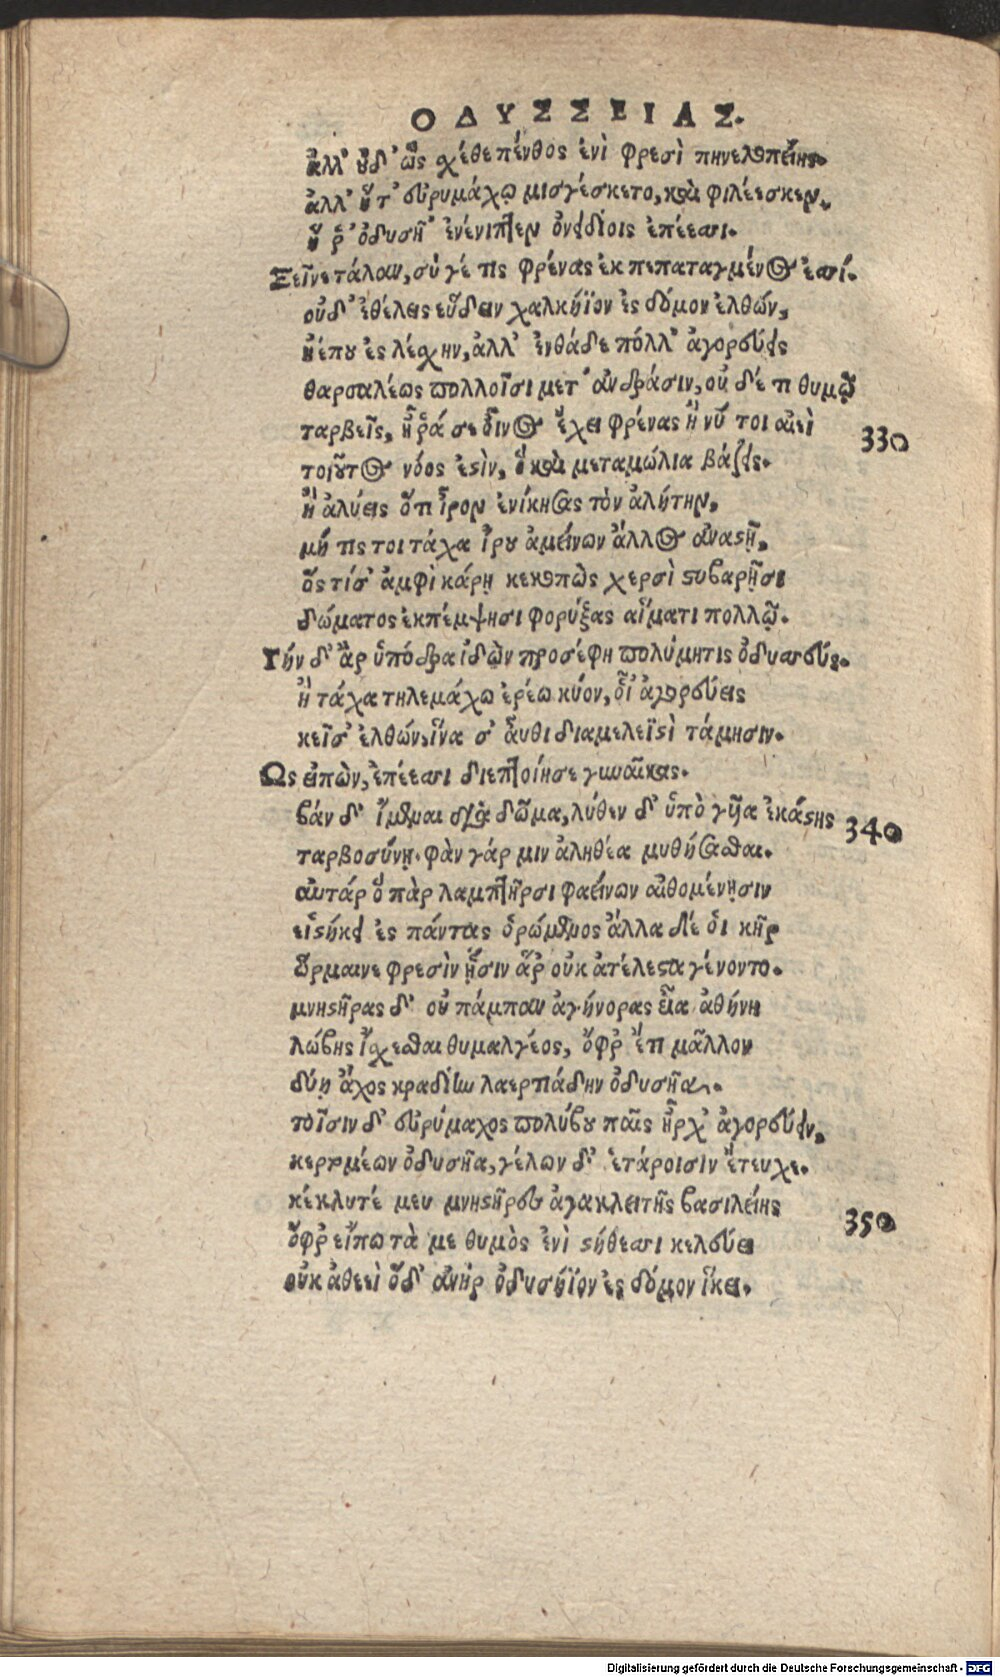 ΟΔΥΣΣΕΙΑΣ.
ἀλλ' οὐδ' ὣς σχέθε πένθος ἐνὶ φρεσὶ πηνελοπείης.
ἀλλ' ἥτ' εὐρυμάχῳ μισγέσκετο, καὶ φιλέεσκεν.
ἥ ῥ' ὀδυσῆ' ἐνένιπτεν ὀνειδίοις ἐπέεσσι.
Ξεῖνε τάλαν, σύ γέ τις φρένας ἐκπεπαταγμένος ἐσσί.
οὐδ' ἐθέλεις εὕδειν χαλκήϊον ἐς δόμον ἐλθών,
ἠέ που ἐς λέσχην, ἀλλ' ἐνθάδε πόλλ' ἀγορεύεις
θαρσαλέως πολλοῖσι μετ' ἀνδράσιν, οὐ δέ τι θυμῷ
ταρβεῖς, ἦ ῥά σε οἶνος ἔχει φρένας ἤ νύ τοι αἰεὶ 330
τοιοῦτος νόος ἐστὶν, ὃ καὶ μεταμώλια βάζεις.
ἢ ἀλύεις ὅτι ἶρον ἐνίκησας τὸν ἀλήτην,
μή τις τοι τάχα ἴρου ἀμείνων ἄλλος ἀναστῇ,
ὅς τίς σ' ἀμφὶ κάρη κεκοπὼς χερσὶ στιβαρῇσι
δώματος ἐκπέμψησι φορύξας αἵματι πολλῷ.
Τήν δ' ἂρ ὑπόδρα ἰδὼν προσέφη πολύμητις ὀδυσσεύς.
ἢ τάχα τηλεμάχῳ ἐρέω κύον, οἷ' ἀγορεύεις
κεῖσ' ἐλθών, ἵνα σ' αὖθι διαμελεϊστὶ τάμησιν.
Ως εἰπὼν, ἐπέεσσι διεπτοίησε γυναῖκας.
βάν δ' ἴμεναι διὰ δῶμα, λύθεν δ' ὑπὸ γυῖα ἑκάστης 340
ταρβοσύνῃ. φὰν γάρ μιν ἀληθέα μυθήσασθαι.
αὐτάρ ὃ πὰρ λαμπτῆρσι φαείνων αἰθομένῃσιν
εἱστήκει ἐς πάντας ὁρώμενος ἄλλα δέ οἱ κῆρ
ὥρμαινε φρεσὶν ᾗσιν ἅ ῥ' οὐκ ἀτέλεστα γένοντο.
μνηστῆρας δ' οὐ πάμπαν ἀγήνορας εἴα ἀθήνη
λώβης ἴσχεσθαι θυμαλγέος, ὄφρ' ἔτι μᾶλλον
δύῃ ἄχος κραδίην λαερτιάδην ὀδυσῆα.
τοῖσιν δ' εὐρύμαχος πολύβου παῖς ἦρχ' ἀγορεύειν,
κερτομέων ὀδυσῆα, γέλων δ' ἑτάροισιν ἔτευχε.
κέκλυτέ μευ μνηστῆρες ἀγακλειτῆς βασιλείης 350
ὄφρ' εἴπω τὰ με θυμὸς ἐνὶ στήθεσσι κελεύει
οὐκ ἀθεεὶ ὅδ' ἀνὴρ ὀδυσήϊον ἐς δόμον ἵκει.
Digitalisierung gefördert durch die Deutsche Forschungsgemeinschaft - DFG